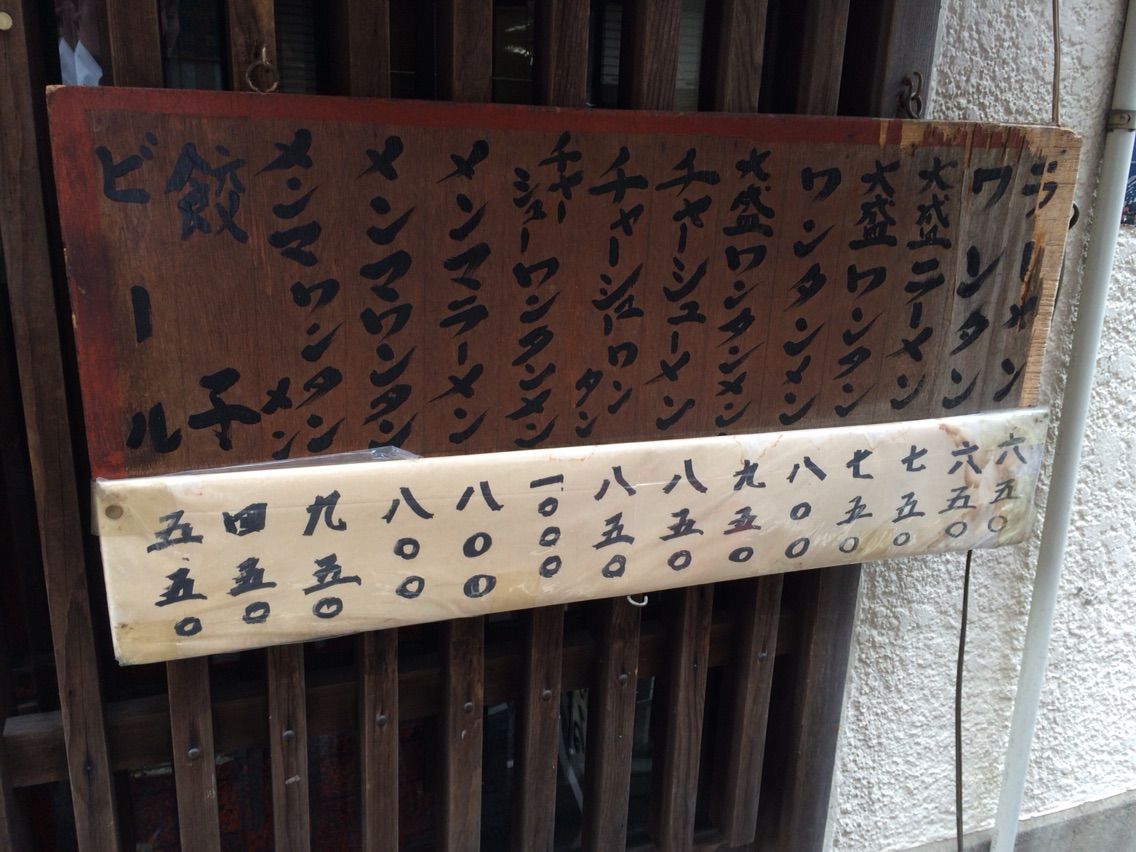 ラーメン
ワンタン
大盛ラーメン
大盛ワンタン
ワンタンメン
大盛ワンタンメン
チャーシューメン
チャーシューワンタン
チャーシューワンタンメン
メンマラーメン
メンマワンタン
メンマワンタンメン
餃子
ビール
六五〇
六五〇
七五〇
七五〇
八〇〇
九五〇
八五〇
八五〇
一〇〇〇
八〇〇
八〇〇
九五〇
四五〇
五五〇